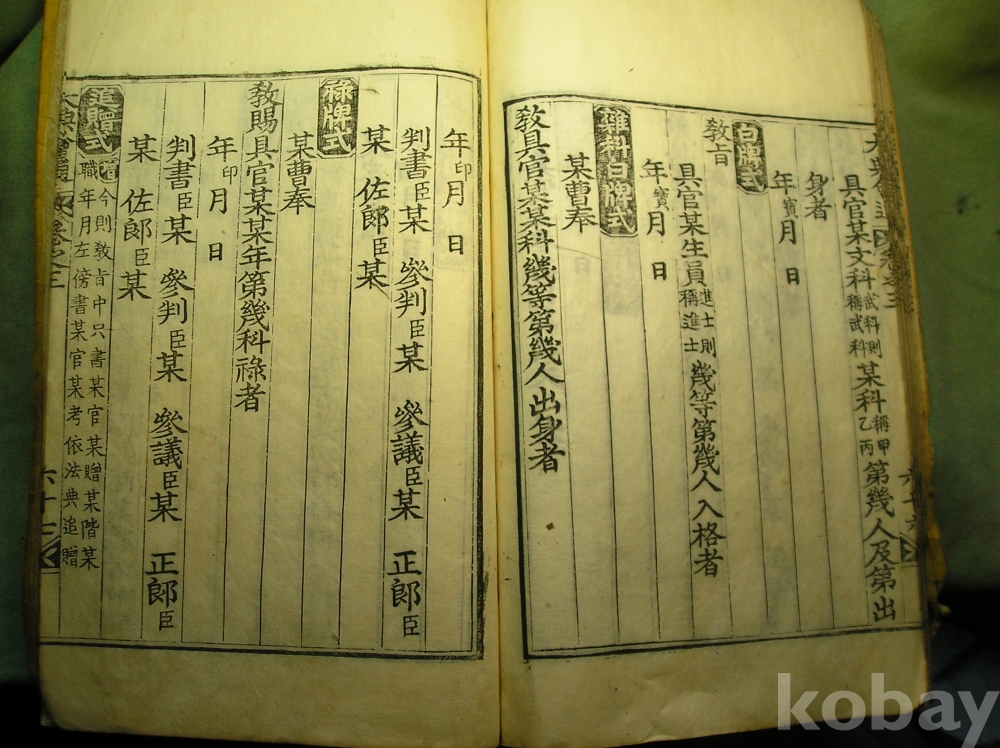 具官某文科武科則稱武科某科稱甲乙丙第幾人及第出
身者
年寶月 日
白牌式
敎旨
具官某生員進士則稱進士幾等第幾人入格者
年寶月 日
雜科白牌式
某曹奉
敎具官某某科幾等第幾人出身者
六十六
年印月 日
判書臣某 參判臣某 參議臣某 正郎臣
某 佐郎臣某
祿牌式
某曹奉
敎賜具官某某年第幾科祿者
年印月 日
判書臣某 參判臣某 參議臣某 正郎臣
某 佐郎臣某
追贈式
今則敎旨中只書某官某贈某階某
職年月左傍書某官某考依法典追贈
卷之三
六十七
kobay